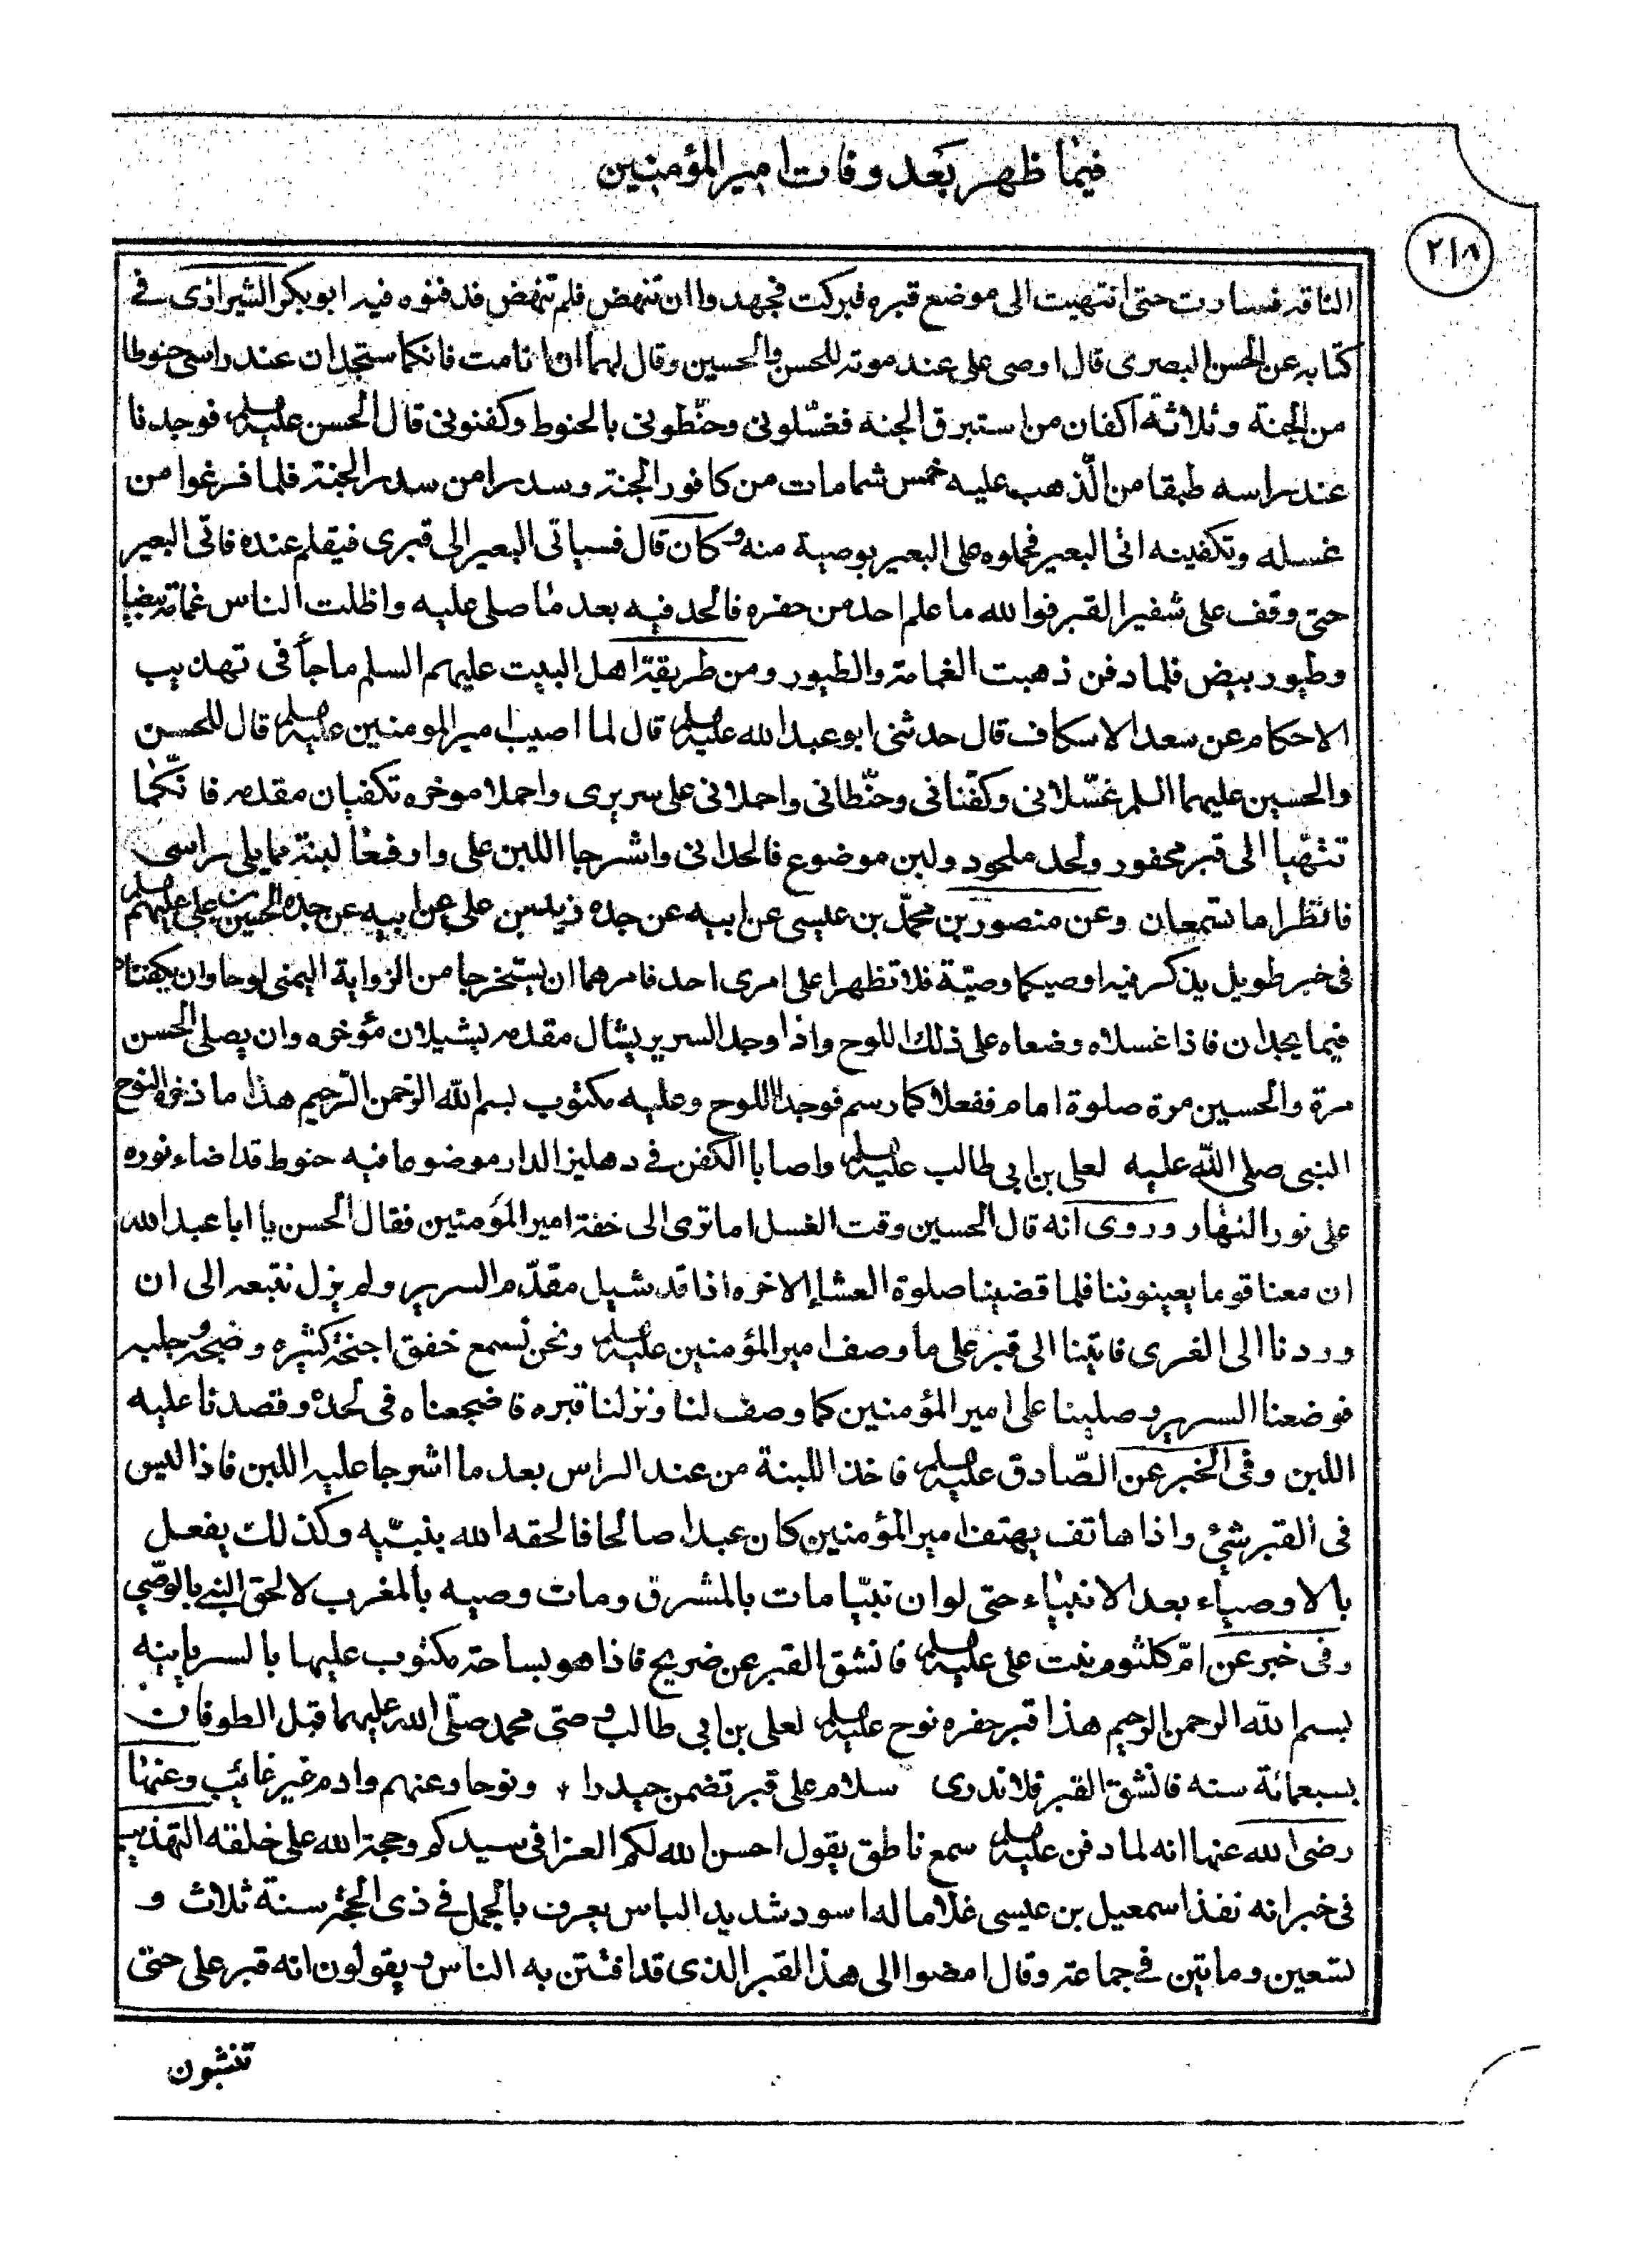 فيما ظهر بعد وفات امير المؤمنين
٢١٨
الناقه فسارت حتى انتهيت الى موضع قبره فبركت فجهدوا ان تنهض فلم تنهض فدفنوه فيه ابو بكر الشيرازى في
كتابه عن الحسن البصرى قال اوصى على عند موته للحسن والحسين وقال لهما ان انا مت فانكما ستجدان عند راسى حنوطا
من الجنة وثلاثة اكفان من استبرق الجنه فغسّلونى وحنّطونى بالحنوط وكفنونى قال الحسن عليه السلم فوجدنا
عند راسه طبقا من الذهب عليه خمس شمامات من كافور الجنة وسدرا من سدر الجنة فلما فرغوا من
غسله وتكفينه اتى البعير فحملوه على البعير بوصية منه وكان قال فسياتى البعير الى قبرى فيقلم عنده فاتى البعير
حتى وقف على شفير القبر فوالله ما علم احد من حفره فالحد فيه بعد ما صلى عليه واظلت الناس غمامة بيضا
وطيور بيض فلما دفن ذهبت الغمامة والطيور ومن طريقة اهل البيت عليهم السلم ما جأ فى تهذيب
الاحكام عن سعد الاسكاف قال حدثنى ابو عبد الله عليه السلم قال لما اصيب امير المومنين عليه السلم قال للحسن
والحسين عليهما السلم غسّلانى وكفّنانى وحنّطانى واحملانى على سريرى واحملا موخره تكفيان مقدمه فانّكما
تنتهيا الى قبر محفور ولحد ملحود ولبن موضوع فالحدانى واشرجا اللبن على وارفعا لبنة مما يلى راسى
فانظرا ما تسمعان وعن منصور بن محمّد بن عيسى عن ابيه عن جده زيد بن على عن ابيه عن جده الحسين بن على عليهم السلم
فى خبر طويل يذكر فيه اوصيكما وصيّة فلا تظهرا على امرى احد فامرهما ان يستخرجا من الزواية اليمنى لوحا وان يكفناه
فيما يجدان فاذا غسلاه وضعاه على ذلك اللوح واذا وجد السرير يشال مقدمه يشيلان مؤخره وان يصلى الحسن
مرة والحسين مرة صلوة امام ففعلا كما رسم فوجدا اللوح وعليه مكتوب بسم الله الرحمن الرحيم هذا ما ذخره النوح
النبى صلى الله عليه لعلى بن ابي طالب عليه السلم واصابا الكفن في دهليز الدار موضوعا فيه حنوط قد اضاء نوره
على نور النهار وروى انه قال الحسين وقت الغسل اما ترى الى خفة امير المؤمنين فقال الحسن يا ابا عبد الله
ان معنا قوما يعينوننا فلما قضينا صلوة العشا الاخره اذا قد شيل مقدّم السرير ولم يزل نتبعه الى ان
وردنا الى الغرى فاتينا الى قبر على ما وصف امير المؤمنين عليه السلم ونحن نسمع خفق اجنحة كثيره وضجة وجلبه
فوضعنا السرير وصلينا على امير المؤمنين كما وصف لنا ونزلنا قبره فاضجعناه فى لحده ونضدنا عليه
اللبن وفى الخبر عن الصّادق عليه السلم فاخذا اللبنة من عند الراس بعد ما اشرجا عليه اللبن فاذا ليس
فى القبر شئ واذا هاتف يهتف امير المؤمنين كان عبدا صالحا فالحقه الله بنبيّه وكذلك يفعل
بالاوصياء بعد الانبياء حتى لو ان نبيّا مات بالمشرق ومات وصيه بالمغرب لالحق النبي بالوصّى
وفى خبر عن امّ كلثوم بنت على عليه السلم فانشق القبر عن ضريح فاذا هو بساحة مكتوب عليها بالسريانيه
بسم الله الرحمن الرحيم هذا قبر حفره نوح عليه السلم لعلى بن ابي طالب وصى محمد صلّى الله عليهما قبل الطوفان
بسبعمائة سنه فانشق القبر فلا ندرى سلام على قبر تضمن حيدرا ، ونوحا وعنهم وادم غير غائب وعنها
رضى الله عنها انه لما دفن عليه السلم سمع ناطق يقول احسن الله لكم العزا فى سيدكم وحجة الله على خلقه التهذيب
فى خبر انه نفذ اسمعيل بن عيسى غلاما له اسود شديد الباس يعرف بالجمل في ذى الحجة سنة ثلاث و
تسعين وماتين في جماعته وقال امضوا الى هذا القبر الذى قد افتتن به الناس ويقولون انه قبر على حتى
تنشون